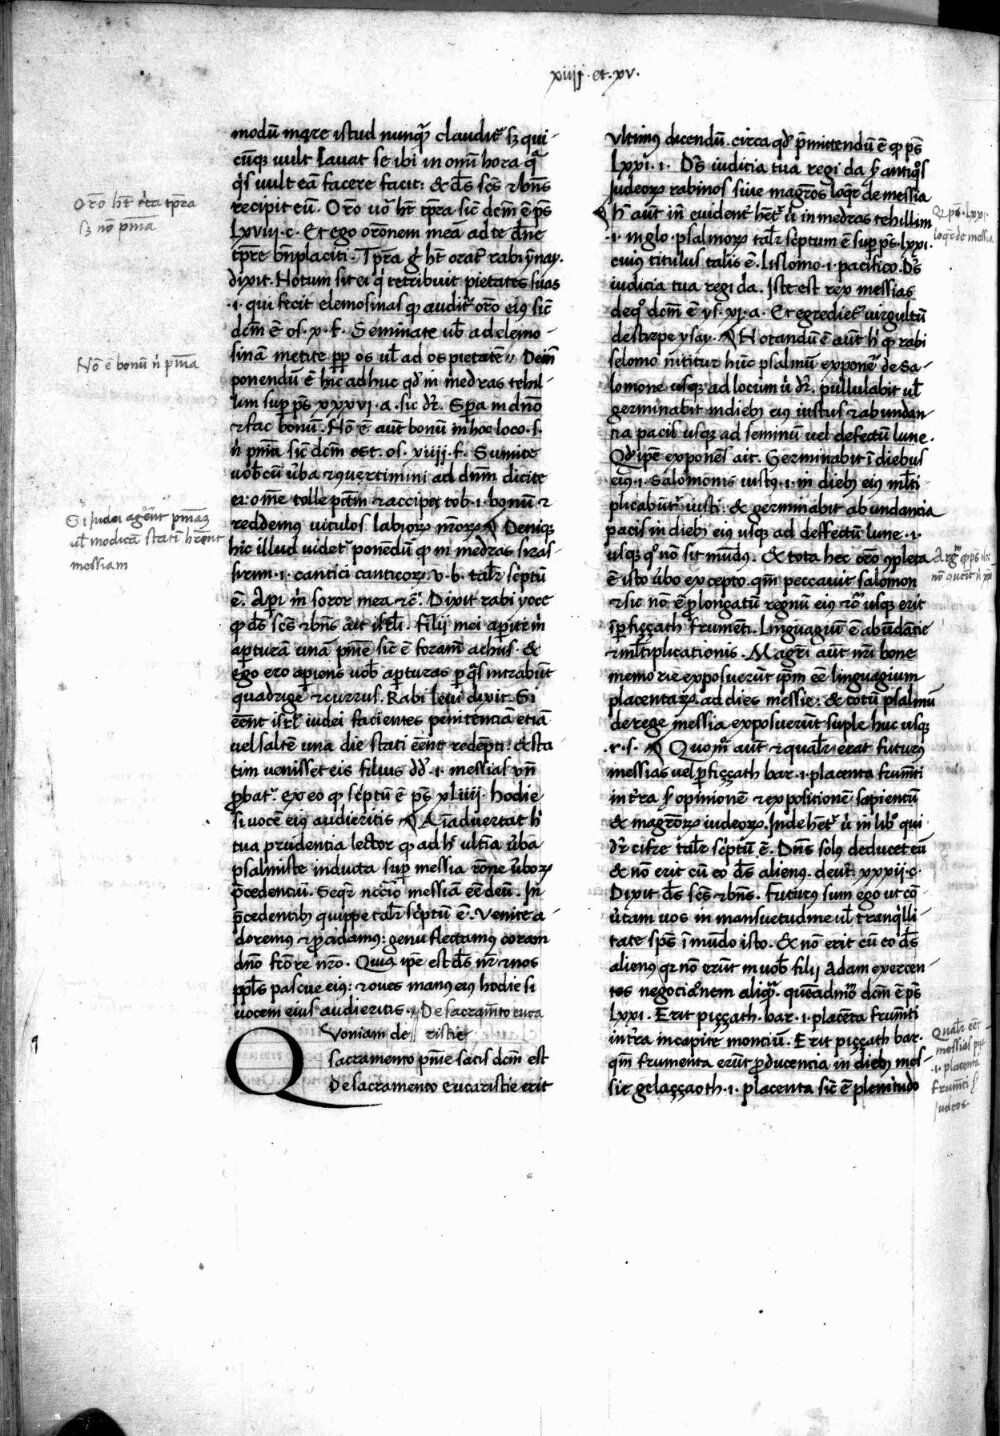 xiiij · et · xv ·
modū mare istud nunq̄ claudit᷑ sȝ qui
cūq; uult lauat se ibi in omni hora q̄
q̇s uult eā facere facit : & ds̄ scs̄ & bn̄s
recipit eū . Oro uo ht̄ tp̄ra sic̄ dcm̄ ē ps̄
Lxviii · c · Et ego oronem mea ad te dn̄e
tp̄re bn̄placiti · Tp̄ra g̊ ht̄ orat᷑ rabi ÿnay .
dixit . Notum sit ei q̇ retribuit pietates suas
· i · qui fecit elemosinas q̄ audit᷑ oro eiꝰ sic̄
dcm̄ ē os · x · f · Seminate uƀ ad elemo
sinā metite pp̄ os uł ad os pietatē
ponendū ē hic adhuc qd̄ in medras tehil
lim sup ps̄ xxxvi · a · sic dr̄ . Spa in dn̄o
& fac bonū . Nō ē aut̄ bonū in hoc loco · s ·
ṅ pn̄ia sic̄ dcm̄ est . os · xiiij · f · Sumite
uobcū ūba & uertimini ad dn̄m dicite
ei : om̄e tolle pctm̄ & accipe tob · i · bonū &
reddemꝰ uitulos labioꝝ nr̄oꝝ ¶ Deniq;
hic illud uidet᷑ ponēdū q̄ in medras siras
sirim · i · cantici canticoꝝ · v · b · talr̄ sc̄ptū
ē . Api m̄ soror mea &c̄ . Dixit rabi yoce
q̄ ds̄ scs̄ & bn̄s ait isrl̄ . filii mei apite m̄
apturā unā pn̄ie sic̄ ē foram̄ achus · &
ego ero apions uob̄ apturas p q̄s intrabūt
quadrige & currus . Rabi leui dixit . Si
eēnt isrl̄ iudei facientes penitēciā etiā
uel saltē una die stati eēnt redēpti : & sta
tim uenisset eis filius dd̄ · i · messias vn̄
ꝓbat᷑ . ex eo q̄ sc̄ptū ē ps̄ xciiij · hodie
si uocē eiꝰ audieritis ¶ Aīaduertat h̄
tua prudencia lector q̄ ad h̄ ultīa ūba
psalmiste inducta sup messia rōne ūboꝝ
p̄cedenciū . Seq̄r nccīo messiā eē deū . In
p̄cedentibꝰ quippe talr̄ sc̄ptū ē . Venite a
doremꝰ & ꝓcidamꝰ : genu flectamꝰ coram
dn̄o fc̄ore nr̄o . Quia ip̄e est ds̄ nr̄ & nos
ppls̄ pascue eiꝰ : & oues manꝰ eiꝰ hodie si
uocem eius audieritis . De sacram̄to euca
Quoniam de ristie
sacramento pn̄ie satis dcm̄ est
De sacramento eucaristie erit
ultimꝰ dicendū . circa qd̄ p̄mittendū ē q̄ ps̄
Lxxi · i · Ds̄ iudicia tua regi da s̄ antiq̊s
Judeoꝝ rabinos siue magr̄os loq̄r de messia
¶ h̄ aut̄ in euident̄ hēt᷑ ū in medras tehillim
· i · in glo · psalmoꝝ talr̄ sc̄ptum ē sup ps̄ · lxxi ·
cuiꝰ titulus talis ē . Lislomo · i · pacifico . Ds̄
iudicia tua regi da . Iste est rex messias
de quo dcm̄ ē ys · xi · a · Et egrediet᷑ uirgultū
de stirpe ysay . ¶ Notandū ē aut̄ h̄ q̄ rabi
selomo nitit᷑ hūc psalmū expone᷑ de sa
lomone usq; ad locum ū dr̄ . pullulabit uł
germinabit in diebꝫ eiꝰ iustus & abundan
cia pacis usq; ad seminū uel defectū lune .
Qd̄ ip̄e exponēs ait . Germinabit ī diebus
eiꝰ · i · Salomonis iustꝰ · i · in diebꝫ eiꝰ ml̄ti
plicabūt᷑ iusti : & germinabit abundancia
pacis in diebꝫ eiꝰ usq; ad deffectū lune · i ·
usq; q̊ nō sit mūdꝰ . & tota hec orō 9pleta
ē isto ūbo excepto . qm̄ peccauit salomon
& sic nō ē ꝓlongatū regnū eiꝰ usq; erit
īp̄ficcath frumēti . Linguagiū ē abūdācie
& ml̄tiplicationis . Magr̄i aut̄ nr̄i bone
memorie exposuerūt ip̄m eē linguagium
placentaꝝ . ad dies messie : & totū psalmū
de rege messia exposuerūt suple huc usq;
· r · s · ¶ Quom̊ aut̄ & qualr̄ erat futurꝰ
messias uel p̄ficcath bar · i · placenta frumēti
in tr̄a s̄ opinionē & expositionē sapienciū
& magr̄oꝝ iudeoꝝ . Inde hēt᷑ ū in libº qui
dr̄ cifre talr̄ sc̄ptū ē . Dn̄s solꝰ deducet eū
& nō erit cū eo ds̄ alienꝰ . deut̄ xxxii · c ·
Dixit ds̄ scs̄ & bn̄s . Futurꝰ sum ego ut cō
ūtam uos in mansuetudine uł tranq̇lli
tate sps̄ ī mūdo isto . & nō erit cū eo ds̄
alienꝰ qr nō erūt in uob̄ filij Adam exercen
tes negociacōnem aliq̄ . queādmo dcm̄ ē ps̄
Lxxi . Erit piccath . bar · i · placēta frumēti
in tr̄a in capite monciū . Erit piccath bar .
qm̄ frumenta erūt ꝓducencia in diebꝫ mes
sie gelaccaoth · i · placenta sic̄ ē plenitudo
Orō ht̄ c̄ta tp̄ra
sȝ nō pn̄ia
Nō ē bonū ṅ pn̄ia
Si iudei agerēt pn̄iaȝ
uł modicā stati hēr̄ent
messiam
Q̄ ps̄ · Lxxi ·
loq̄r de messia
Qualr̄ erit
messias
· i · placenta
frumēti s̄
iudeos .